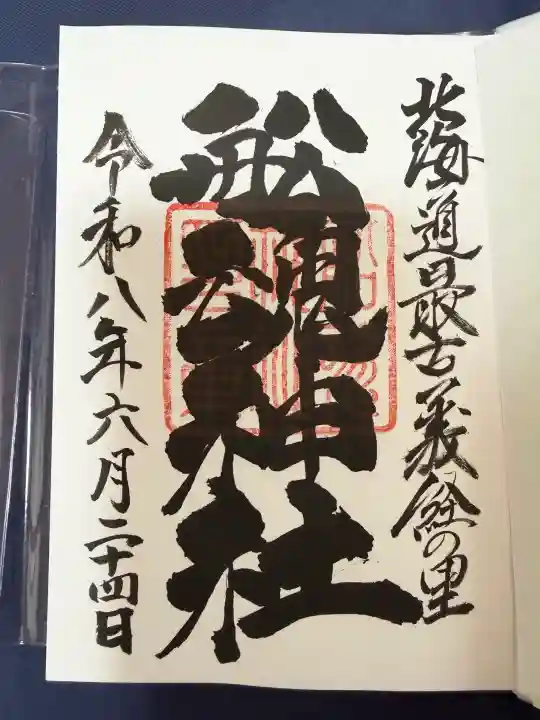 北海道最古義経の里
船魂神社
令和八年六月二十四日